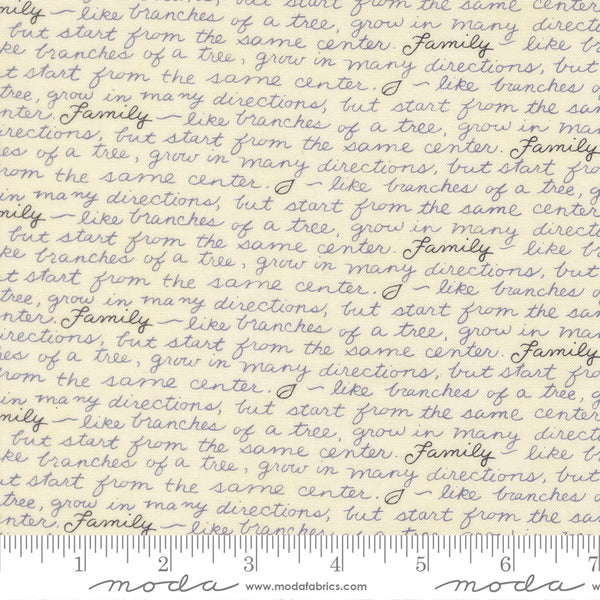 mily – like branches of a tree, grow in many directi
but start from the same center. Family – like b
ke branches of a tree, grow in many directions, but
t start from the same center. – like branches o
tree, grow in many directions, but start from the sa
nter. Family – like branches of a tree, grow in man
irections, but start from the same center. Family
es of a tree, grow in many directions, but start fro
rom the same center. – like branches of a tree, g
in many directions, but start from the same center
mily – like branches of a tree, grow in many directi
but start from the same center. Family – like b
ke branches of a tree, grow in many directions, but
t start from the same center. – like branches o
tree, grow in many directions, but start from the sa
nter. Family – like branches of a tree, grow in man
irections, but start from the same center. Family
es of a tree, grow in many directions, but start fro
rom the same center. – like branches of a tree, g
in many directions, but start from the same center
mily – like branches of a tree, grow in many directi
but start from the same center. Family – like b
ke branches of a tree, grow in many directions, but
t start from the same center. – like branches o
tree, grow in many directions, but start from the sa
enter. Family – like branches of a tree, grow in man
1 2 3 4 5 6 7
moda www.modafabrics.com moda